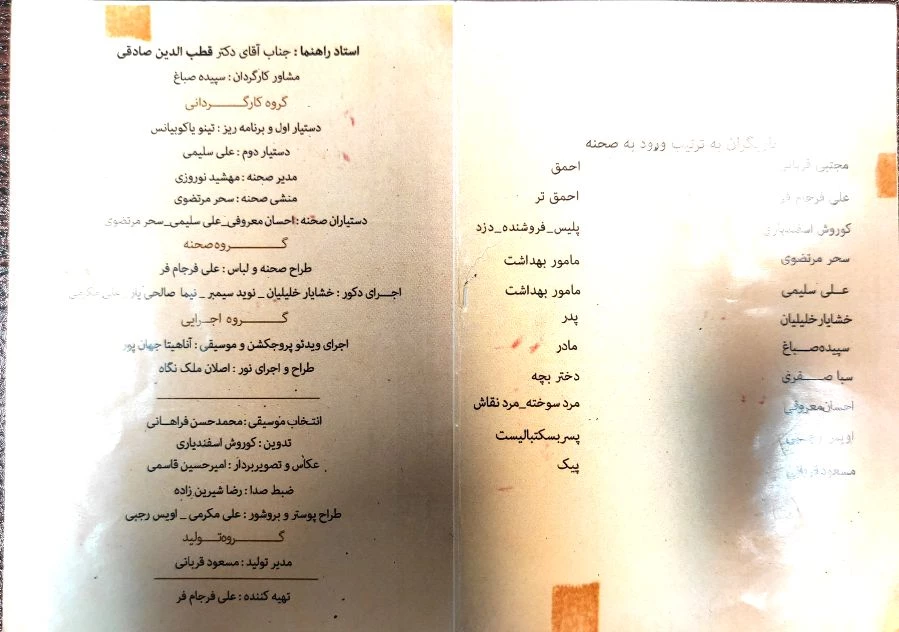 بازیگران به ترتیب ورود به صحنه
مجتبی قربانی احمق
علی فرجام فر احمق تر
کوروش اسفندیاری پلیس_فروشنده_دزد
سحر مرتضوی مامور بهداشت
علی سلیمی مامور بهداشت
خشایار خلیلیان پدر
سپیده صباغ مادر
سبا صفری دختر بچه
احسان معروفی مرد سوخته_مرد نقاش
اویس رجبی پسر بسکتبالیست
مسعود قربانی پیک
استاد راهنما : جناب آقای دکتر قطب الدین صادقی
مشاور کارگردان : سپیده صباغ
گروه کارگردانی
دستیار اول و برنامه ریز : تینو یاکوبیانس
دستیار دوم : علی سلیمی
مدیر صحنه : مهشید نوروزی
منشی صحنه : سحر مرتضوی
دستیاران صحنه : احسان معروفی_علی سلیمی_سحر مرتضوی
گروه صحنه
طراح صحنه و لباس : علی فرجام فر
اجرای دکور : خشایار خلیلیان _ نوید سیمبر _ نیما صالحی یار _ علی مکرمی
گروه اجرایی
اجرای ویدئو پروجکشن و موسیقی : آناهیتا جهان پور
طراح و اجرای نور : اصلان ملک نگاه
انتخاب موسیقی : محمدحسن فراهانی
تدوین : کوروش اسفندیاری
عکاس و تصویربردار : امیرحسین قاسمی
ضبط صدا : رضا شیرین زاده
طراح پوستر و بروشور : علی مکرمی _ اویس رجبی
گروه تولید
مدیر تولید : مسعود قربانی
تهیه کننده : علی فرجام فر